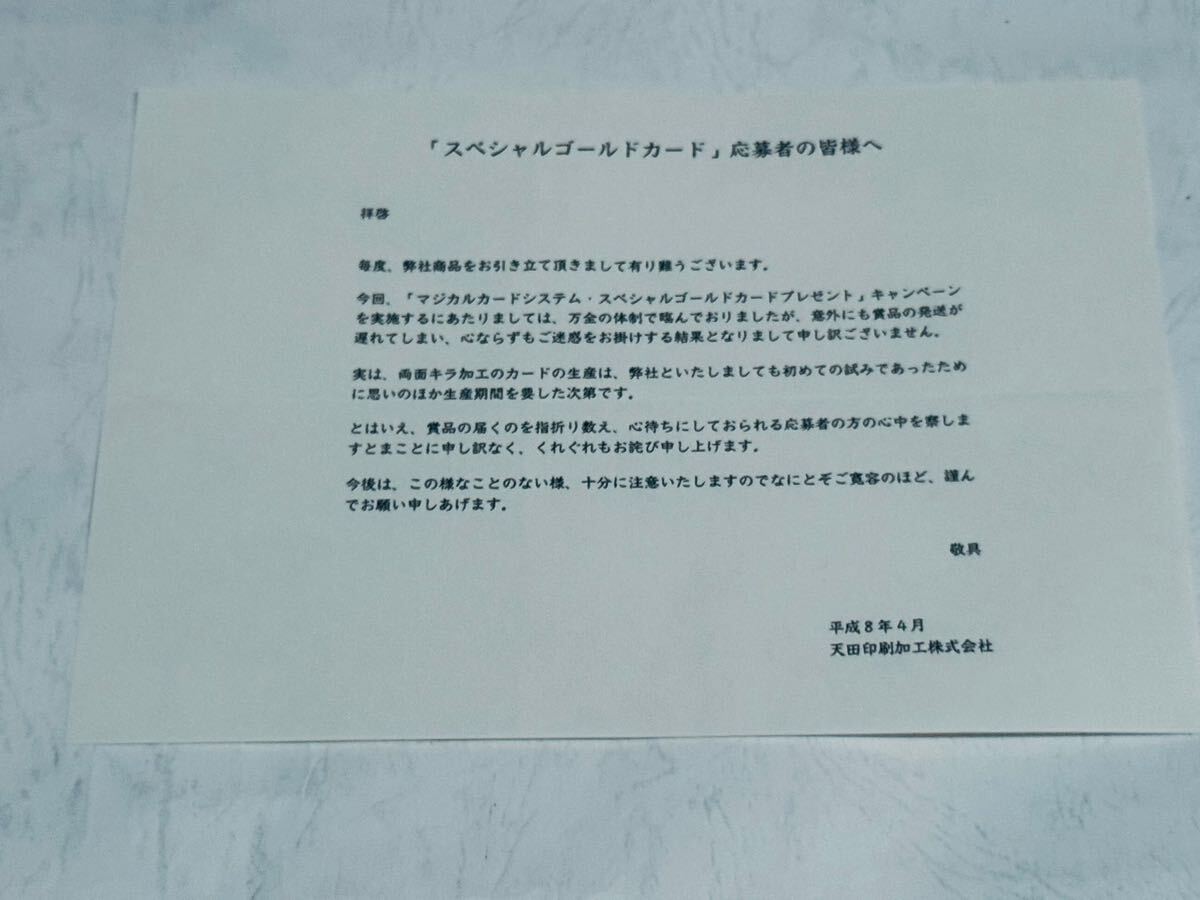 「スペシャルゴールドカード」応募者の皆様へ
拝啓
毎度、弊社商品をお引き立て頂きまして有り難うございます。
今回、「マジカルカードシステム・スペシャルゴールドカードプレゼント」キャンペーン
を実施するにあたりましては、万全の体制で臨んでおりましたが、意外にも賞品の発送が
遅れてしまい、心ならずもご迷惑をお掛けする結果となりまして申し訳ございません。
実は、両面キラ加工のカードの生産は、弊社といたしましても初めての試みであったため
に思いのほか生産期間を要した次第です。
とはいえ、賞品の届くのを指折り数え、心待ちにしておられる応募者の方の心中を察しま
すとまことに申し訳なく、くれぐれもお詫び申し上げます。
今後は、この様なことのない様、十分に注意いたしますのでなにとぞご寛容のほど、謹ん
でお願い申しあげます。
敬具
平成8年4月
天田印刷加工株式会社